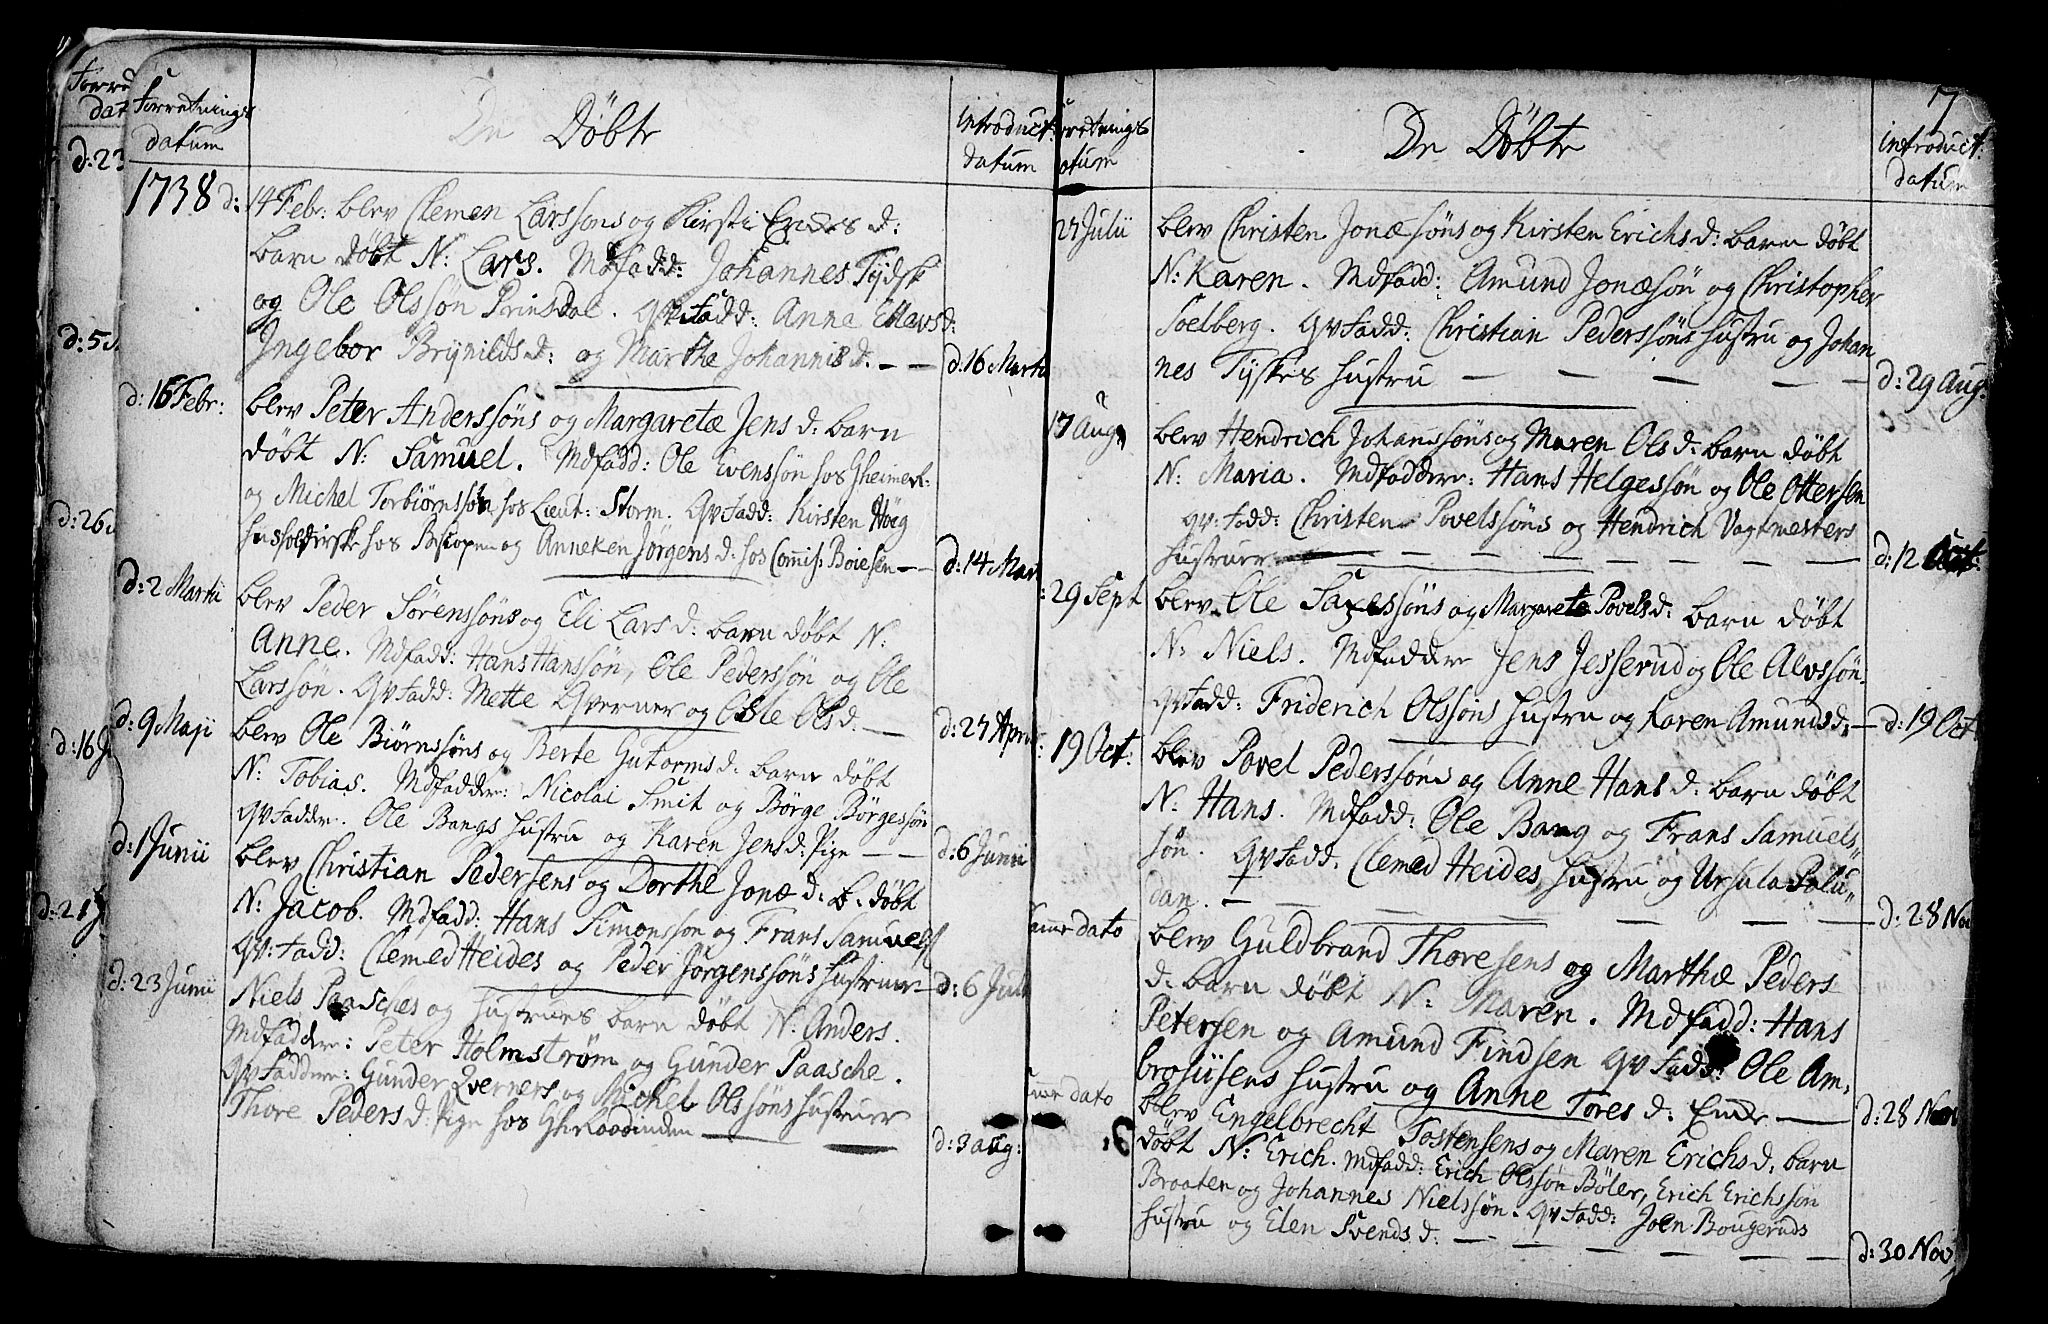 Forretnings
datum
De Døbte
introduct:
datum
1738 d: 14 Febr: blev Clemen Larssøns og Kirsti d:
barn døbt N: Lars. Mdfadd: Johannes Tydsk
og Ole Olssøn Prinsdal. Qvfadd: Anne Ellevsd:
Ingebor Brÿnilds d: og Marthe Johannis d. — —
d: 16 Martii
d: 16 Febr:
blev Peter Anderssøns og Margaretæ Jens d: barn
døbt N: Samuel. Mdfadd: Ole Evenssøn hos Gheimer:
og Michel Torbiørnssøn hos Lieut: Storm. Qvfadd: Kirsten Høeg
hos Biscopen og Anneken Jørgens d: hos Commis: Boiesen —
d: 14 Mart
d: 2 Martii
blev Peder Sørenssøns og Eli Lars d: barn døbt N:
Anne. Mdfadd: Hans Hanssøn, Ole Pederssøn og Ole
Larssøn. Qvfadd: Mette Qverner og Ols d. —
d: 27 April
d: 9 Maji
blev Ole Biørnssøns og Berte Gutorms d: barn døbt
N: Tobias. Mdfaddre: Nicolai Smit og Børge Børgessøn
Qvfaddre. Ole Bangs hustru og Karen Jens d: Pige — —
d: 6 Junii
d: 1 Junii
blev Christian Pedersens og Dorthe Jonæ d: b. døbt
N: Jacob. Mdfadd: Hans Simonssøn og Frans Samuels
Qv: fadd: Clemed Heides og Peder Jørgenssøns hustruer —
d: 6 Juli
d: 23 Junii
Niels Paasches og hustrues barn døbt N: Anders.
Mdfaddre: Peter Holmstrøm og Gunder Paasche.
Qvfaddre: Gunder Qverners og Michel Olssøns hustruer
Thore Peders d: Pige hos
d: 3 aug:
17
Forretnings
datum
De Døbte
introduct:
datum
27 Julii
blev Christen Jonæsøns og Kirsten Erichs d: barn døbt
N: Karen. Mdfadd: Amund Jonæsøn og Christopher
Soelberg. Qvfadd: Christian Pederssøns hustru og Johan
nes Tyskes hustru — — — — —
d: 29 Aug:
17 Aug
blev Hendrich Johanssøns og Maren Ols d: barn døbt
N: Maria. Mdfaddere: Hans Helgessøn og Ole Ottersen
qv: fadd: Christen Povelssøns og Hendrich Vagtmesters
hustruer — — — — — —
d: 12
29 Sept
blev Ole Saxessøns og Margarete Povels d: barn døbt
N: Niels. Mdfaddere Jens Jesserud og Ole Alvssøn.
qvfadd: Friderich Olssøns hustru og Karen Amunds d: —
d: 19 Oct
19 Oct:
blev Povel Pederssøns og Anne Hans d: barn døbt
N: Hans. Mdfadd: Ole Bang og Frans Samuels-
søn. Qvfadd. Clemed Heides hustru og Ursula Palu-
dan. — — — — — —
d: 28 Nov
samme dato
blev Guldbrand Thoresens og Marthæ Peders
d: barn døbt N: Maren. Mdfadd: Hans
Petersen og Amund Findsen Qvfadd: Ole Am-
brosiisens hustru og Anne Tores d: Ende —
d: 28 Nov
samme dato
blev Engelbrecht Tostensens og Maren Erichs d. barn
døbt N: Erich. Mdfadd: Erich Olssøn Bøler, Erich Erichssøn
Braaten og Johannes Nielssøn. Qvfadd: Joen Bougeruds
hustru og Elen Svends d. — — — — —
d: 30 Nov
d: 23
d: 5
d: 26
d: 16
d: 21